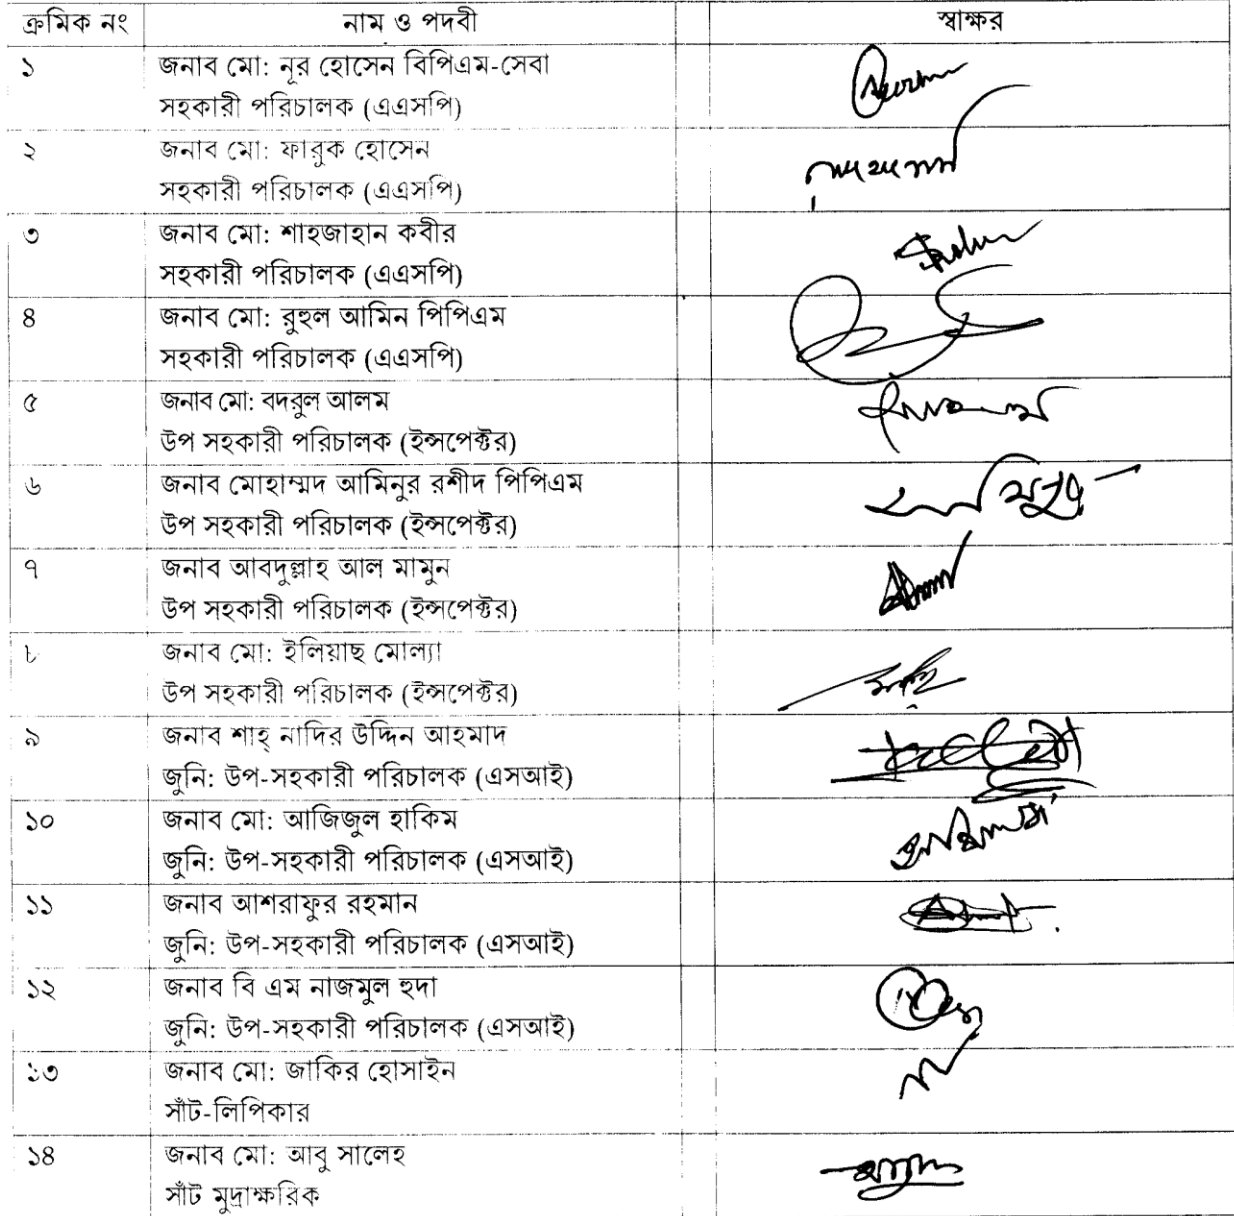 ক্রমিক নং নাম ও পদবী স্বাক্ষর
১ জনাব মো: নূর হোসেন বিপিএম-সেবা
সহকারী পরিচালক (এএসপি)
২ জনাব মো: ফারুক হোসেন
সহকারী পরিচালক (এএসপি)
৩ জনাব মো: শাহজাহান কবীর
সহকারী পরিচালক (এএসপি)
৪ জনাব মো: রুহুল আমিন পিপিএম
সহকারী পরিচালক (এএসপি)
৫ জনাব মো: বদরুল আলম
উপ সহকারী পরিচালক (ইন্সপেক্টর)
৬ জনাব মোহাম্মদ আমিনুর রশীদ পিপিএম
উপ সহকারী পরিচালক (ইন্সপেক্টর)
৭ জনাব আবদুল্লাহ আল মামুন
উপ সহকারী পরিচালক (ইন্সপেক্টর)
৮ জনাব মো: ইলিয়াছ মোল্যা
উপ সহকারী পরিচালক (ইন্সপেক্টর)
৯ জনাব শাহ্ নাদির উদ্দিন আহমাদ
জুনি: উপ-সহকারী পরিচালক (এসআই)
১০ জনাব মো: আজিজুল হাকিম
জুনি: উপ-সহকারী পরিচালক (এসআই)
১১ জনাব আশরাফুর রহমান
জুনি: উপ-সহকারী পরিচালক (এসআই)
১২ জনাব বি এম নাজমুল হুদা
জুনি: উপ-সহকারী পরিচালক (এসআই)
১৩ জনাব মো: জাকির হোসাইন
সাঁট-লিপিকার
১৪ জনাব মো: আবু সালেহ
সাঁট মুদ্রাক্ষরিক